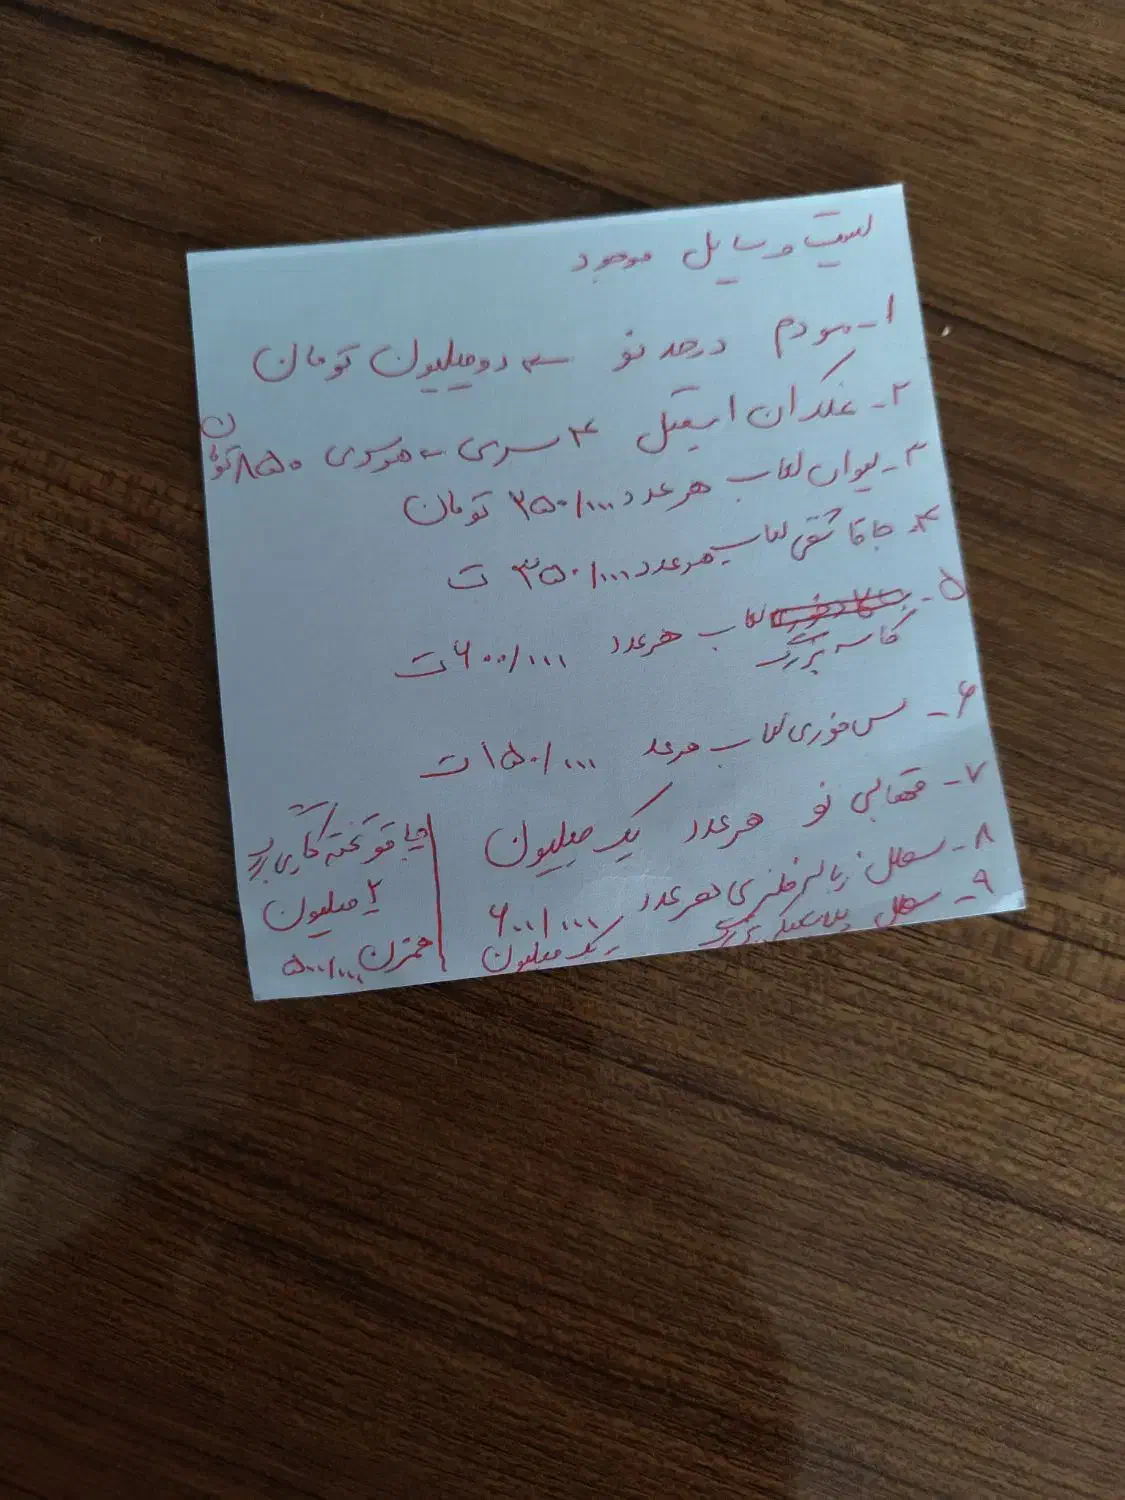 لیست وسایل موجود
۱- مودم درحد نو ← دو میلیون تومان
۲- نمکدان استیل ۴ سری ← هرسری ۸۵۰ تومان
۳- لیوان لعاب هرعدد ۲۵۰/۰۰۰ تومان
۴- جاقاشقی لعاب هرعدد ۳۵۰/۰۰۰ ت
۵- کاسه بزرگ لعاب هرعدد ۶۰۰/۰۰۰ ت
۶- سس خوری لعاب هرعدد ۱۵۰/۰۰۰ ت
۷- قهالی نو هرعدد یک میلیون
۸- سطل زباله فلزی هرعدد ۶۰۰/۰۰۰
۹- سطل پلاستیک بزرگ یک میلیون
چاقو تخته کاری بزرگ
۲ میلیون
همزن ۵۰۰/۰۰۰